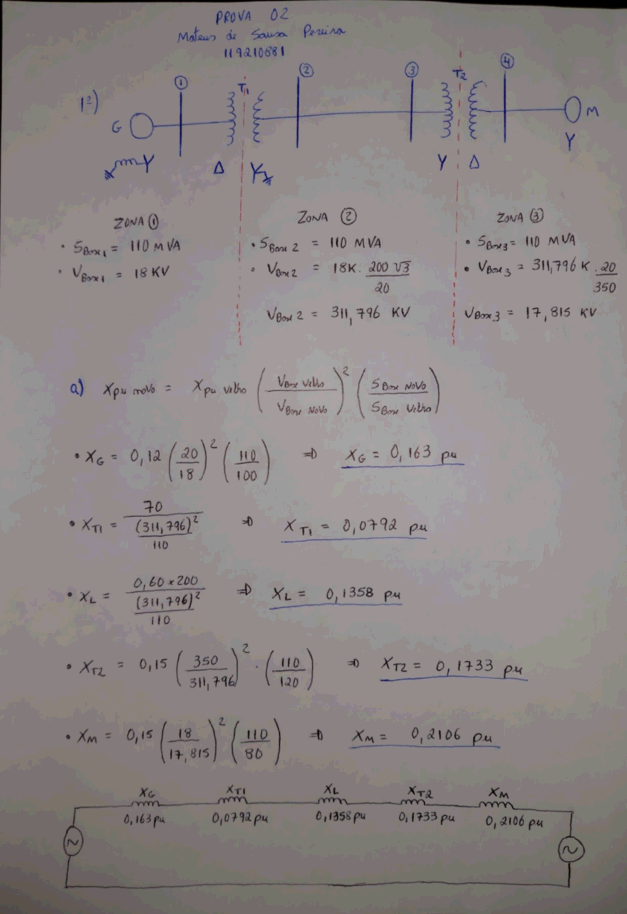 PROVA 02
Mateus de Sousa Pereira
119210681
1ª)
① T1 ② ③ T2 ④
G M
Y Δ Y Y Δ Y
ZONA ①
• SBase1 = 110 MVA
• VBase1 = 18 KV
ZONA ②
• SBase2 = 110 MVA
• VBase2 = 18K . 200 √3 / 20
VBase2 = 311,796 KV
ZONA ③
• SBase3 = 110 MVA
• VBase3 = 311,796 K . 20 / 350
VBase3 = 17,815 KV
a) Xpu novo = Xpu velho (VBase velho / VBase novo)² (SBase novo / SBase velho)
• XG = 0,12 (20 / 18)² (110 / 100) ⇒ XG = 0,163 pu
• XT1 = 70 / ((311,796)² / 110) ⇒ XT1 = 0,0792 pu
• XL = 0,60 × 200 / ((311,796)² / 110) ⇒ XL = 0,1358 pu
• XT2 = 0,15 (350 / 311,796)² . (110 / 120) ⇒ XT2 = 0,1733 pu
• XM = 0,15 (18 / 17,815)² (110 / 80) ⇒ XM = 0,2106 pu
XG XT1 XL XT2 XM
0,163 pu 0,0792 pu 0,1358 pu 0,1733 pu 0,2106 pu